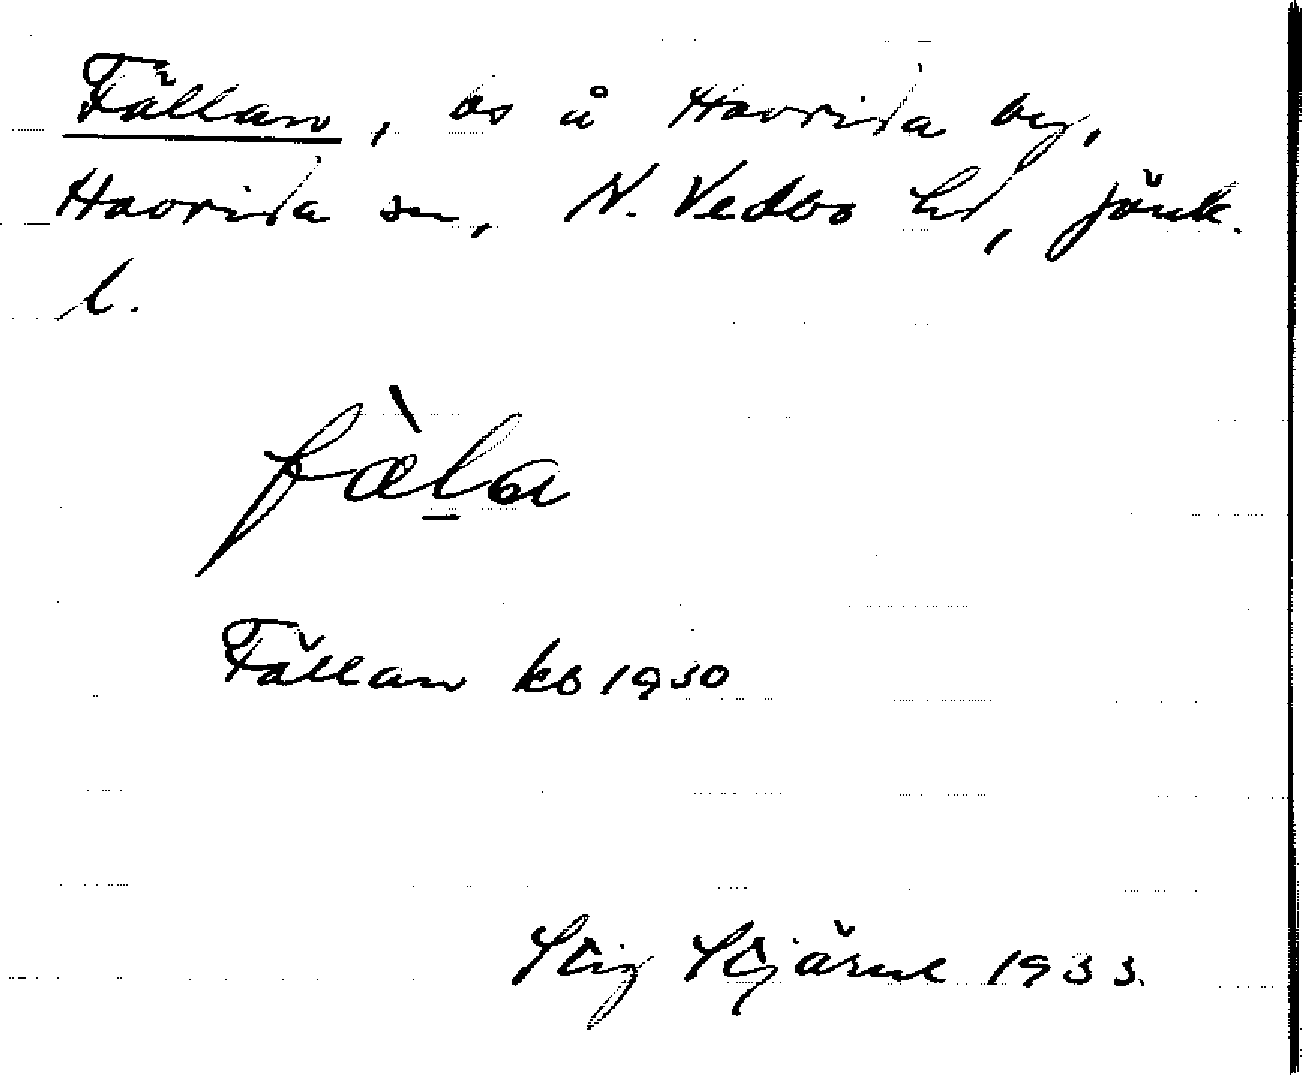 Fällan, bs å Haurida by,
Haurida sn, N. Vedbo hd, Jönk.
l.
fæ̀l̠a
Fällan kb 1930
Stig Stjärne 1933.